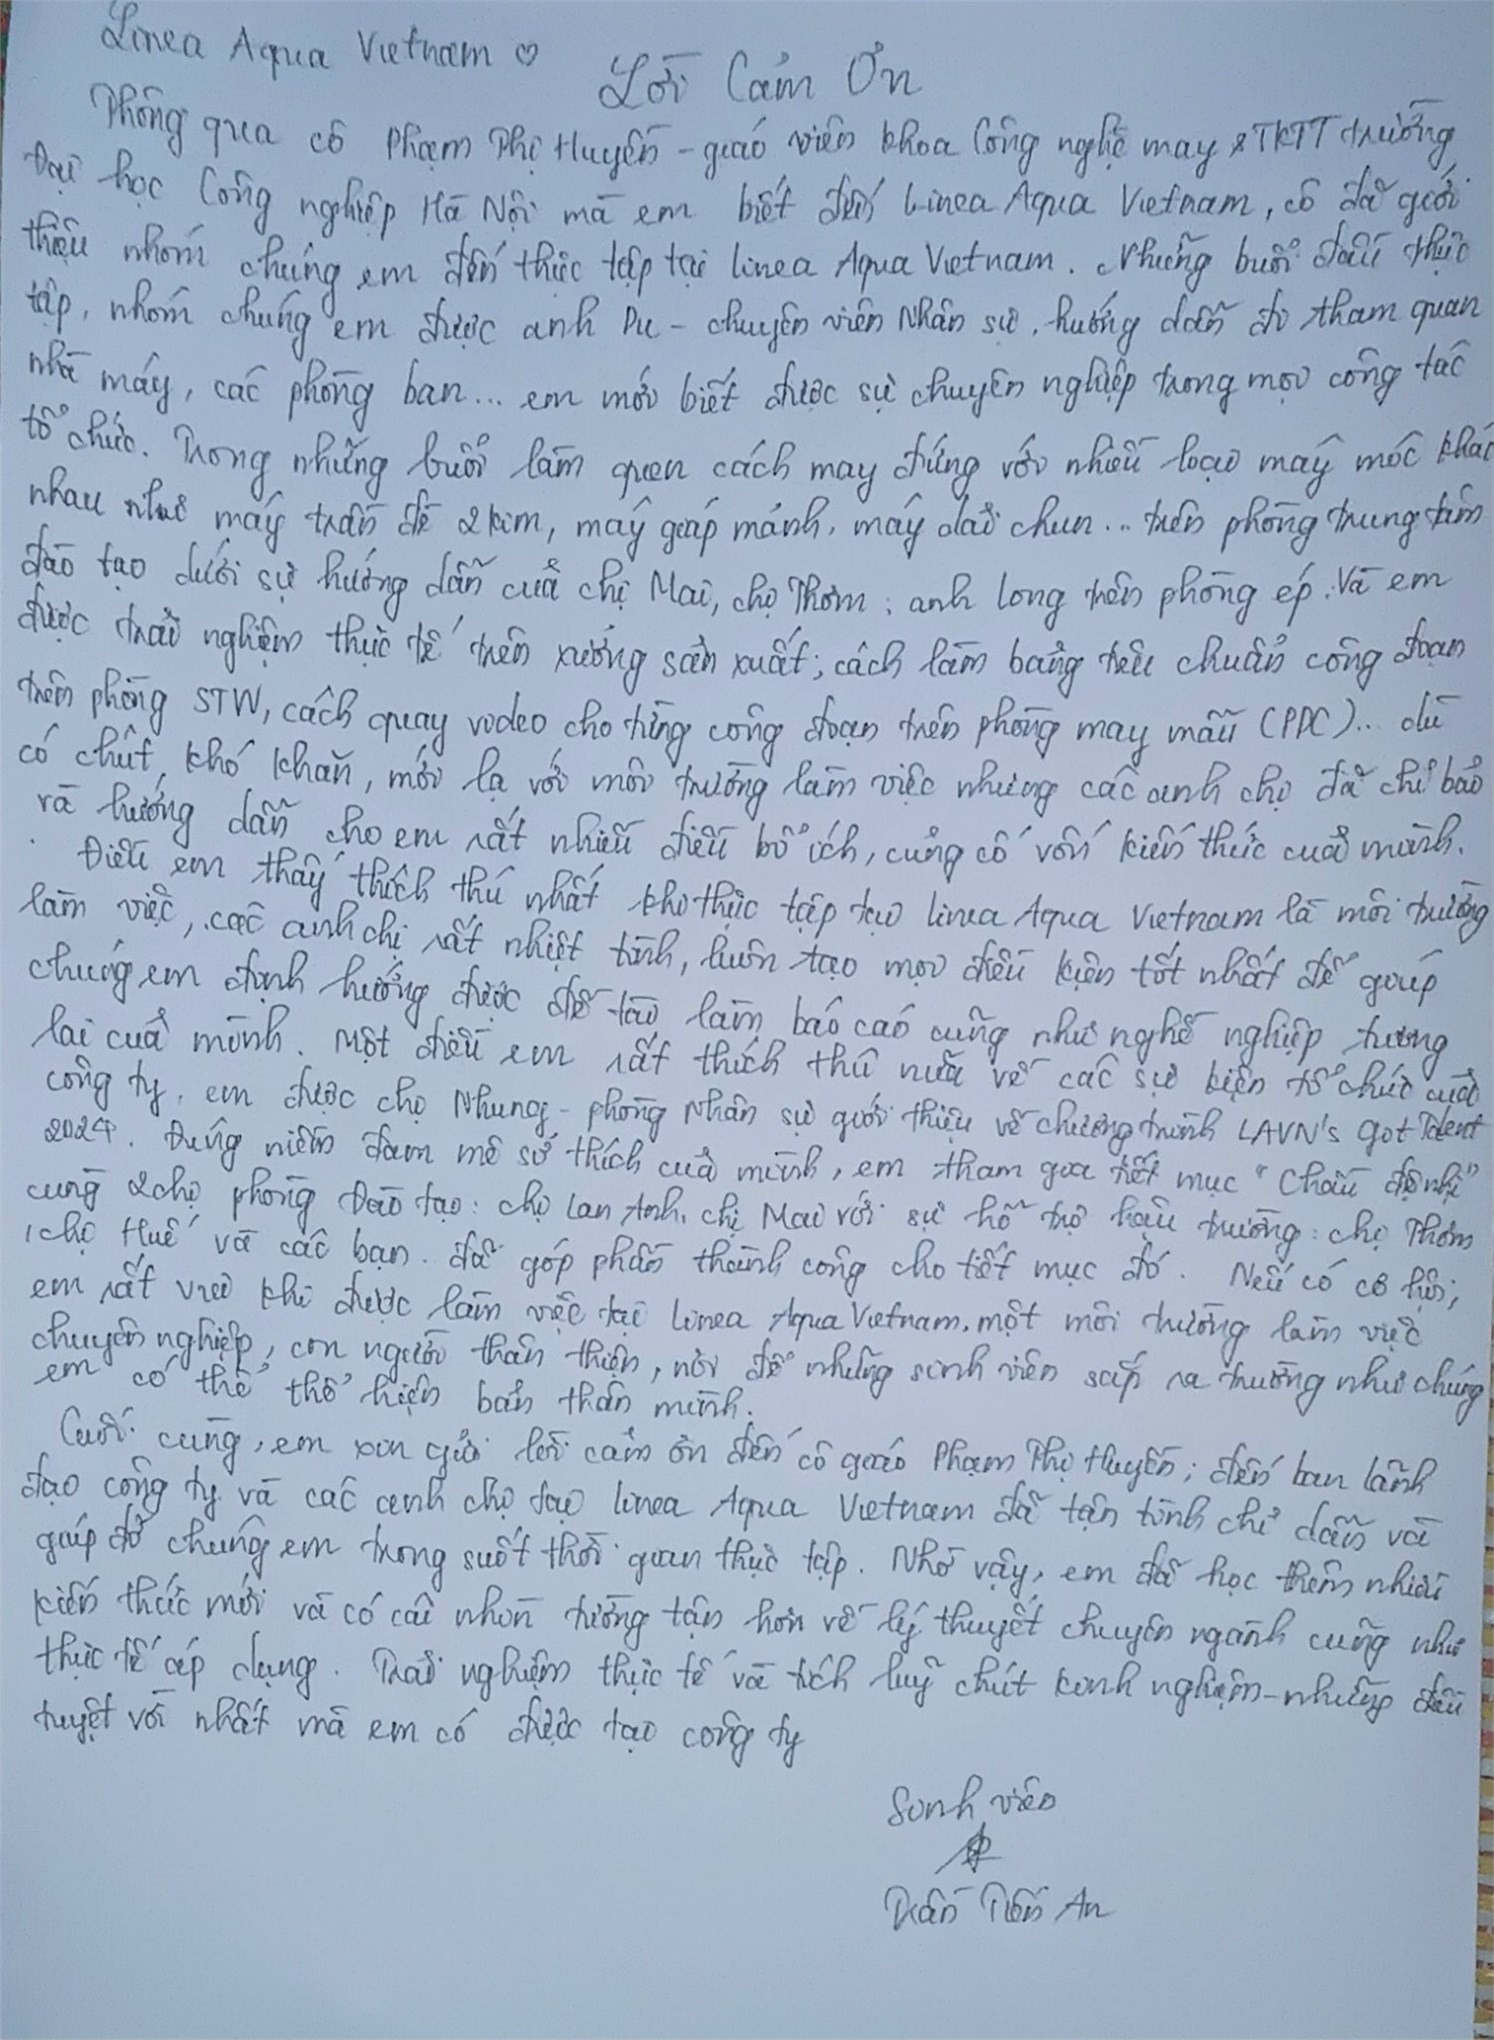 Linea Aqua Vietnam ♡
Lời Cảm Ơn
Thông qua cô Phạm Thị Huyền - giáo viên khoa Công nghệ may & TKTT trường
Đại học Công nghiệp Hà Nội mà em biết đến Linea Aqua Vietnam, cô đã giới
thiệu nhóm chúng em đến thực tập tại Linea Aqua Vietnam. Những buổi đầu thực
tập, nhóm chúng em được anh Du - chuyên viên Nhân sự, hướng dẫn đi tham quan
nhà máy, các phòng ban... em mới biết được sự chuyên nghiệp trong mọi công tác
tổ chức. Trong những buổi làm quen cách may đứng với nhiều loại máy móc khác
nhau như máy trần đè 2 kim, máy giáp mảnh, máy dải chun... trên phòng trung tâm
đào tạo dưới sự hướng dẫn của chị Mai, chị Thơm; anh Long trên phòng ép. Và em
được trải nghiệm thực tế trên xưởng sản xuất; cách làm bảng tiêu chuẩn công đoạn
trên phòng STW, cách quay video cho từng công đoạn trên phòng may mẫu (PDC)... dù
có chút khó khăn, mới lạ với môi trường làm việc nhưng các anh chị đã chỉ bảo
và hướng dẫn cho em rất nhiều điều bổ ích, củng cố vốn kiến thức của mình.
Điều em thấy thích thú nhất khi thực tập tại Linea Aqua Vietnam là môi trường
làm việc, các anh chị rất nhiệt tình, luôn tạo mọi điều kiện tốt nhất để giúp
chúng em định hướng được đề tài làm báo cáo cũng như nghề nghiệp tương
lai của mình. Một điều em rất thích thú nữa về các sự kiện tổ chức của
công ty, em được chị Nhung - phòng Nhân sự giới thiệu về chương trình LAVN's Got Talent
2024. Đúng niềm đam mê sở thích của mình, em tham gia tiết mục "Chầu đệ nhị"
cùng 2 chị phòng Đào tạo: chị Lan Anh, chị Mai với sự hỗ trợ hậu trường: chị Thơm
, chị Huế và các bạn. đã góp phần thành công cho tiết mục đó. Nếu có cơ hội,
em rất vui khi được làm việc tại Linea Aqua Vietnam, một môi trường làm việc
chuyên nghiệp, con người thân thiện, nơi để những sinh viên sắp ra trường như chúng
em có thể thể hiện bản thân mình.
Cuối cùng, em xin gửi lời cảm ơn đến cô giáo Phạm Thị Huyền; đến ban lãnh
đạo công ty và các anh chị tại Linea Aqua Vietnam đã tận tình chỉ dẫn và
giúp đỡ chúng em trong suốt thời gian thực tập. Nhờ vậy, em đã học thêm nhiều
kiến thức mới và có cái nhìn tường tận hơn về lý thuyết chuyên ngành cũng như
thực tế áp dụng. Trải nghiệm thực tế và tích luỹ chút kinh nghiệm - những điều
tuyệt vời nhất mà em có được tại công ty
Sinh viên
Trần Tiến An